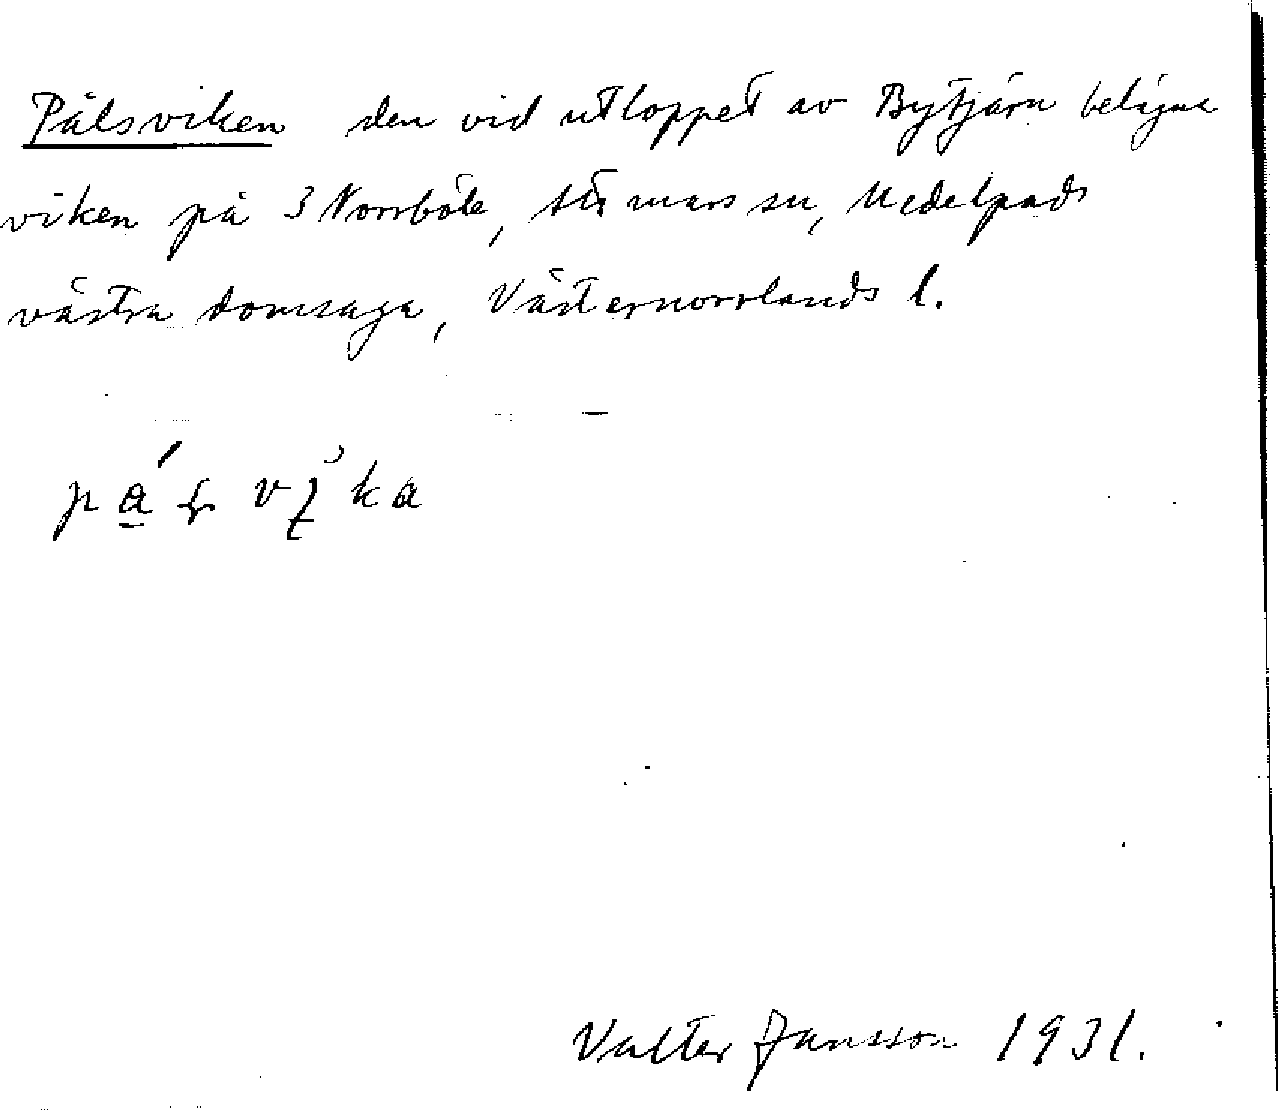 Pålsviken den vid utloppet av Bytjärn belägna
viken på 3 Norrböle, Attmars sn, Medelpads
västra domsaga, Västernorrlands l.
Valter Jansson 1931.